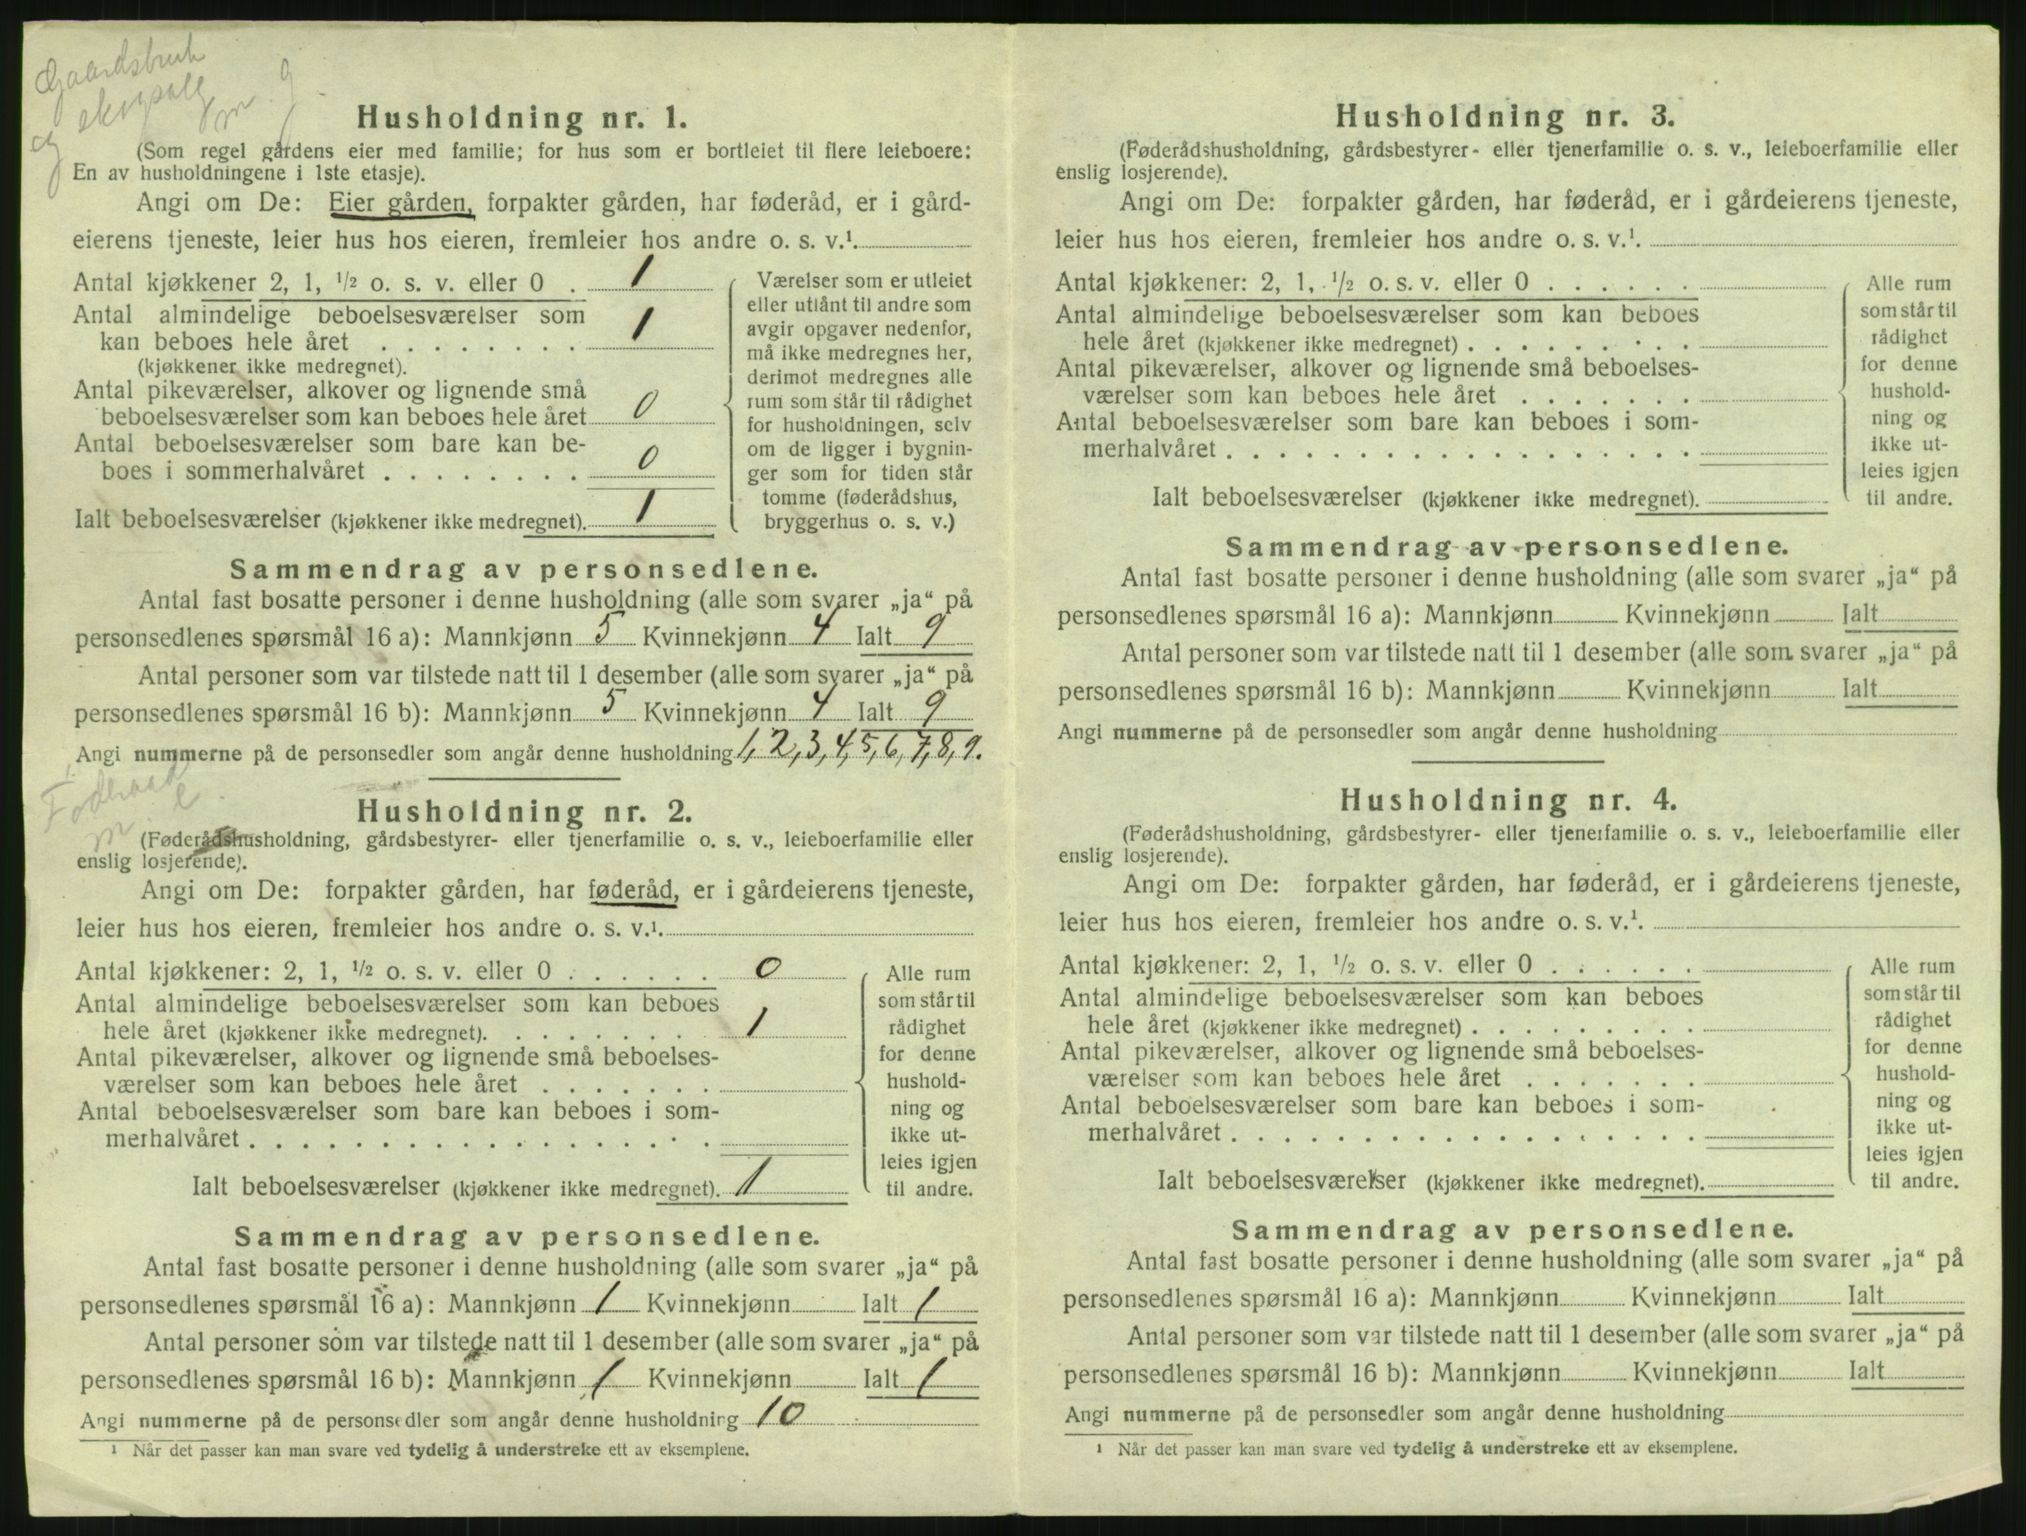 Gaardsbruk
og skogsalg
m g
Husholdning nr. 1.
(Som regel gårdens eier med familie; for hus som er bortleiet til flere leieboere:
En av husholdningene i 1ste etasje).
Angi om De: Eier gården, forpakter gården, har føderåd, er i gård-
eierens tjeneste, leier hus hos eieren, fremleier hos andre o. s. v.¹.
Antal kjøkkener 2, 1, ½ o. s. v. eller 0 . 1
Antal almindelige beboelsesværelser som
kan beboes hele året . . . . . . . . 1
(kjøkkener ikke medregnet).
Antal pikeværelser, alkover og lignende små
beboelsesværelser som kan beboes hele året 0
Antal beboelsesværelser som bare kan be-
boes i sommerhalvåret . . . . . . . . 0
Ialt beboelsesværelser (kjøkkener ikke medregnet). 1
Værelser som er utleiet
eller utlånt til andre som
avgir opgaver nedenfor,
må ikke medregnes her,
derimot medregnes alle
rum som står til rådighet
for husholdningen, selv
om de ligger i bygnin-
ger som for tiden står
tomme (føderådshus,
bryggerhus o. s. v.)
Sammendrag av personsedlene.
Antal fast bosatte personer i denne husholdning (alle som svarer „ja“ på
personsedlenes spørsmål 16 a): Mannkjønn 5 Kvinnekjønn 4 Ialt 9
Antal personer som var tilstede natt til 1 desember (alle som svarer „ja“ på
personsedlenes spørsmål 16 b): Mannkjønn 5 Kvinnekjønn 4 Ialt 9
Angi nummerne på de personsedler som angår denne husholdning 1, 2, 3, 4, 5, 6, 7, 8, 9.
Føderaad
m e
Husholdning nr. 2.
(Føderådshusholdning, gårdsbestyrer- eller tjenerfamilie o. s. v., leieboerfamilie eller
enslig losjerende).
Angi om De: forpakter gården, har føderåd, er i gårdeierens tjeneste,
leier hus hos eieren, fremleier hos andre o. s. v.¹.
Antal kjøkkener: 2, 1, ½ o. s. v. eller 0 . . . . . . 0
Antal almindelige beboelsesværelser som kan beboes
hele året (kjøkkener ikke medregnet). . . . . . . . 1
Antal pikeværelser, alkover og lignende små beboelses-
værelser som kan beboes hele året . . . . . . .
Antal beboelsesværelser som bare kan beboes i som-
merhalvåret . . . . . . . . . . . . . . . . . .
Ialt beboelsesværelser (kjøkkener ikke medregnet). 1
Alle rum
som står til
rådighet
for denne
hushold-
ning og
ikke ut-
leies igjen
til andre.
Sammendrag av personsedlene.
Antal fast bosatte personer i denne husholdning (alle som svarer „ja“ på
personsedlenes spørsmål 16 a): Mannkjønn 1 Kvinnekjønn Ialt 1
Antal personer som var tilstede natt til 1 desember (alle som svarer „ja“ på
personsedlenes spørsmål 16 b): Mannkjønn 1 Kvinnekjønn Ialt 1
Angi nummerne på de personsedler som angår denne husholdning 10
¹ Når det passer kan man svare ved tydelig å understreke ett av eksemplene.
Husholdning nr. 3.
(Føderådshusholdning, gårdsbestyrer- eller tjenerfamilie o. s. v., leieboerfamilie eller
enslig losjerende).
Angi om De: forpakter gården, har føderåd, er i gårdeierens tjeneste,
leier hus hos eieren, fremleier hos andre o. s. v.¹.
Antal kjøkkener: 2, 1, ½ o. s. v. eller 0 . . . . . .
Antal almindelige beboelsesværelser som kan beboes
hele året (kjøkkener ikke medregnet) . . . . . . . . .
Antal pikeværelser, alkover og lignende små beboelses-
værelser som kan beboes hele året . . . . . . .
Antal beboelsesværelser som bare kan beboes i som-
merhalvåret . . . . . . . . . . . . . . . . . .
Ialt beboelsesværelser (kjøkkener ikke medregnet).
Alle rum
som står til
rådighet
for denne
hushold-
ning og
ikke ut-
leies igjen
til andre.
Sammendrag av personsedlene.
Antal fast bosatte personer i denne husholdning (alle som svarer „ja“ på
personsedlenes spørsmål 16 a): Mannkjønn Kvinnekjønn Ialt
Antal personer som var tilstede natt til 1 desember (alle som svarer „ja“ på
personsedlenes spørsmål 16 b): Mannkjønn Kvinnekjønn Ialt
Angi nummerne på de personsedler som angår denne husholdning
Husholdning nr. 4.
(Føderådshusholdning, gårdsbestyrer- eller tjenerfamilie o. s. v., leieboerfamilie eller
enslig losjerende).
Angi om De: forpakter gården, har føderåd, er i gårdeierens tjeneste,
leier hus hos eieren, fremleier hos andre o. s. v.¹.
Antal kjøkkener: 2, 1, ½ o. s. v. eller 0 . . . . . .
Antal almindelige beboelsesværelser som kan beboes
hele året (kjøkkener ikke medregnet) . . . . . . . . .
Antal pikeværelser, alkover og lignende små beboelses-
værelser som kan beboes hele året . . . . . . .
Antal beboelsesværelser som bare kan beboes i som-
merhalvåret . . . . . . . . . . . . . . . . . .
Ialt beboelsesværelser (kjøkkener ikke medregnet).
Alle rum
som står til
rådighet
for denne
hushold-
ning og
ikke ut-
leies igjen
til andre.
Sammendrag av personsedlene.
Antal fast bosatte personer i denne husholdning (alle som svarer „ja“ på
personsedlenes spørsmål 16 a): Mannkjønn Kvinnekjønn Ialt
Antal personer som var tilstede natt til 1 desember (alle som svarer „ja“ på
personsedlenes spørsmål 16 b): Mannkjønn Kvinnekjønn Ialt
Angi nummerne på de personsedler som angår denne husholdning
¹ Når det passer kan man svare ved tydelig å understreke ett av eksemplene.